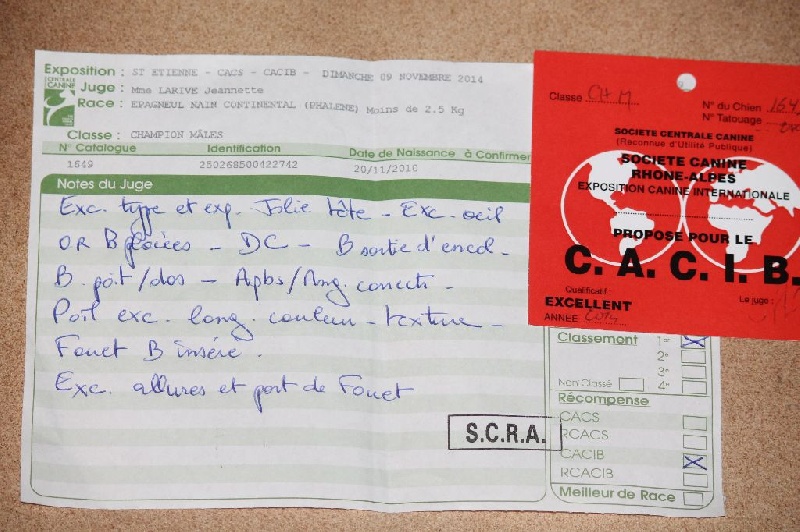 Exposition : ST ETIENNE - CACS - CACIB - DIMANCHE 09 NOVEMBRE 2014
CENTRALE CANINE
Juge : Mme LARIVE Jeannette
Race : EPAGNEUL NAIN CONTINENTAL (PHALENE) Moins de 2.5 Kg
Classe : CHAMPION MÂLES
N° Catalogue Identification Date de Naissance à Confirmer
1649 250268500422742 20/11/2010
Notes du Juge
Exc. type et exp. Jolie tête - Exc. oeil
OR B placées - DC - B sortie d'encol -
B. poit/dos - Aplbs/Ang. correcti -
Poil exc. long. couleur - texture -
Fouet B inséré.
Exc. allures et port de Fouet
S.C.R.A.
Classe CH M
N° du Chien 164
N° Tatouage
SOCIETE CENTRALE CANINE
(Reconnue d'Utilité Publique)
SOCIETE CANINE
RHONE-ALPES
EXPOSITION CANINE INTERNATIONALE
PROPOSE POUR LE
C. A. C. I. B.
Qualificatif :
EXCELLENT
Le juge :
ANNÉE 2014
Classement 1°
2°
3°
Non Classé 4°
Récompense
CACS
RCACS
CACIB
RCACIB
Meilleur de Race